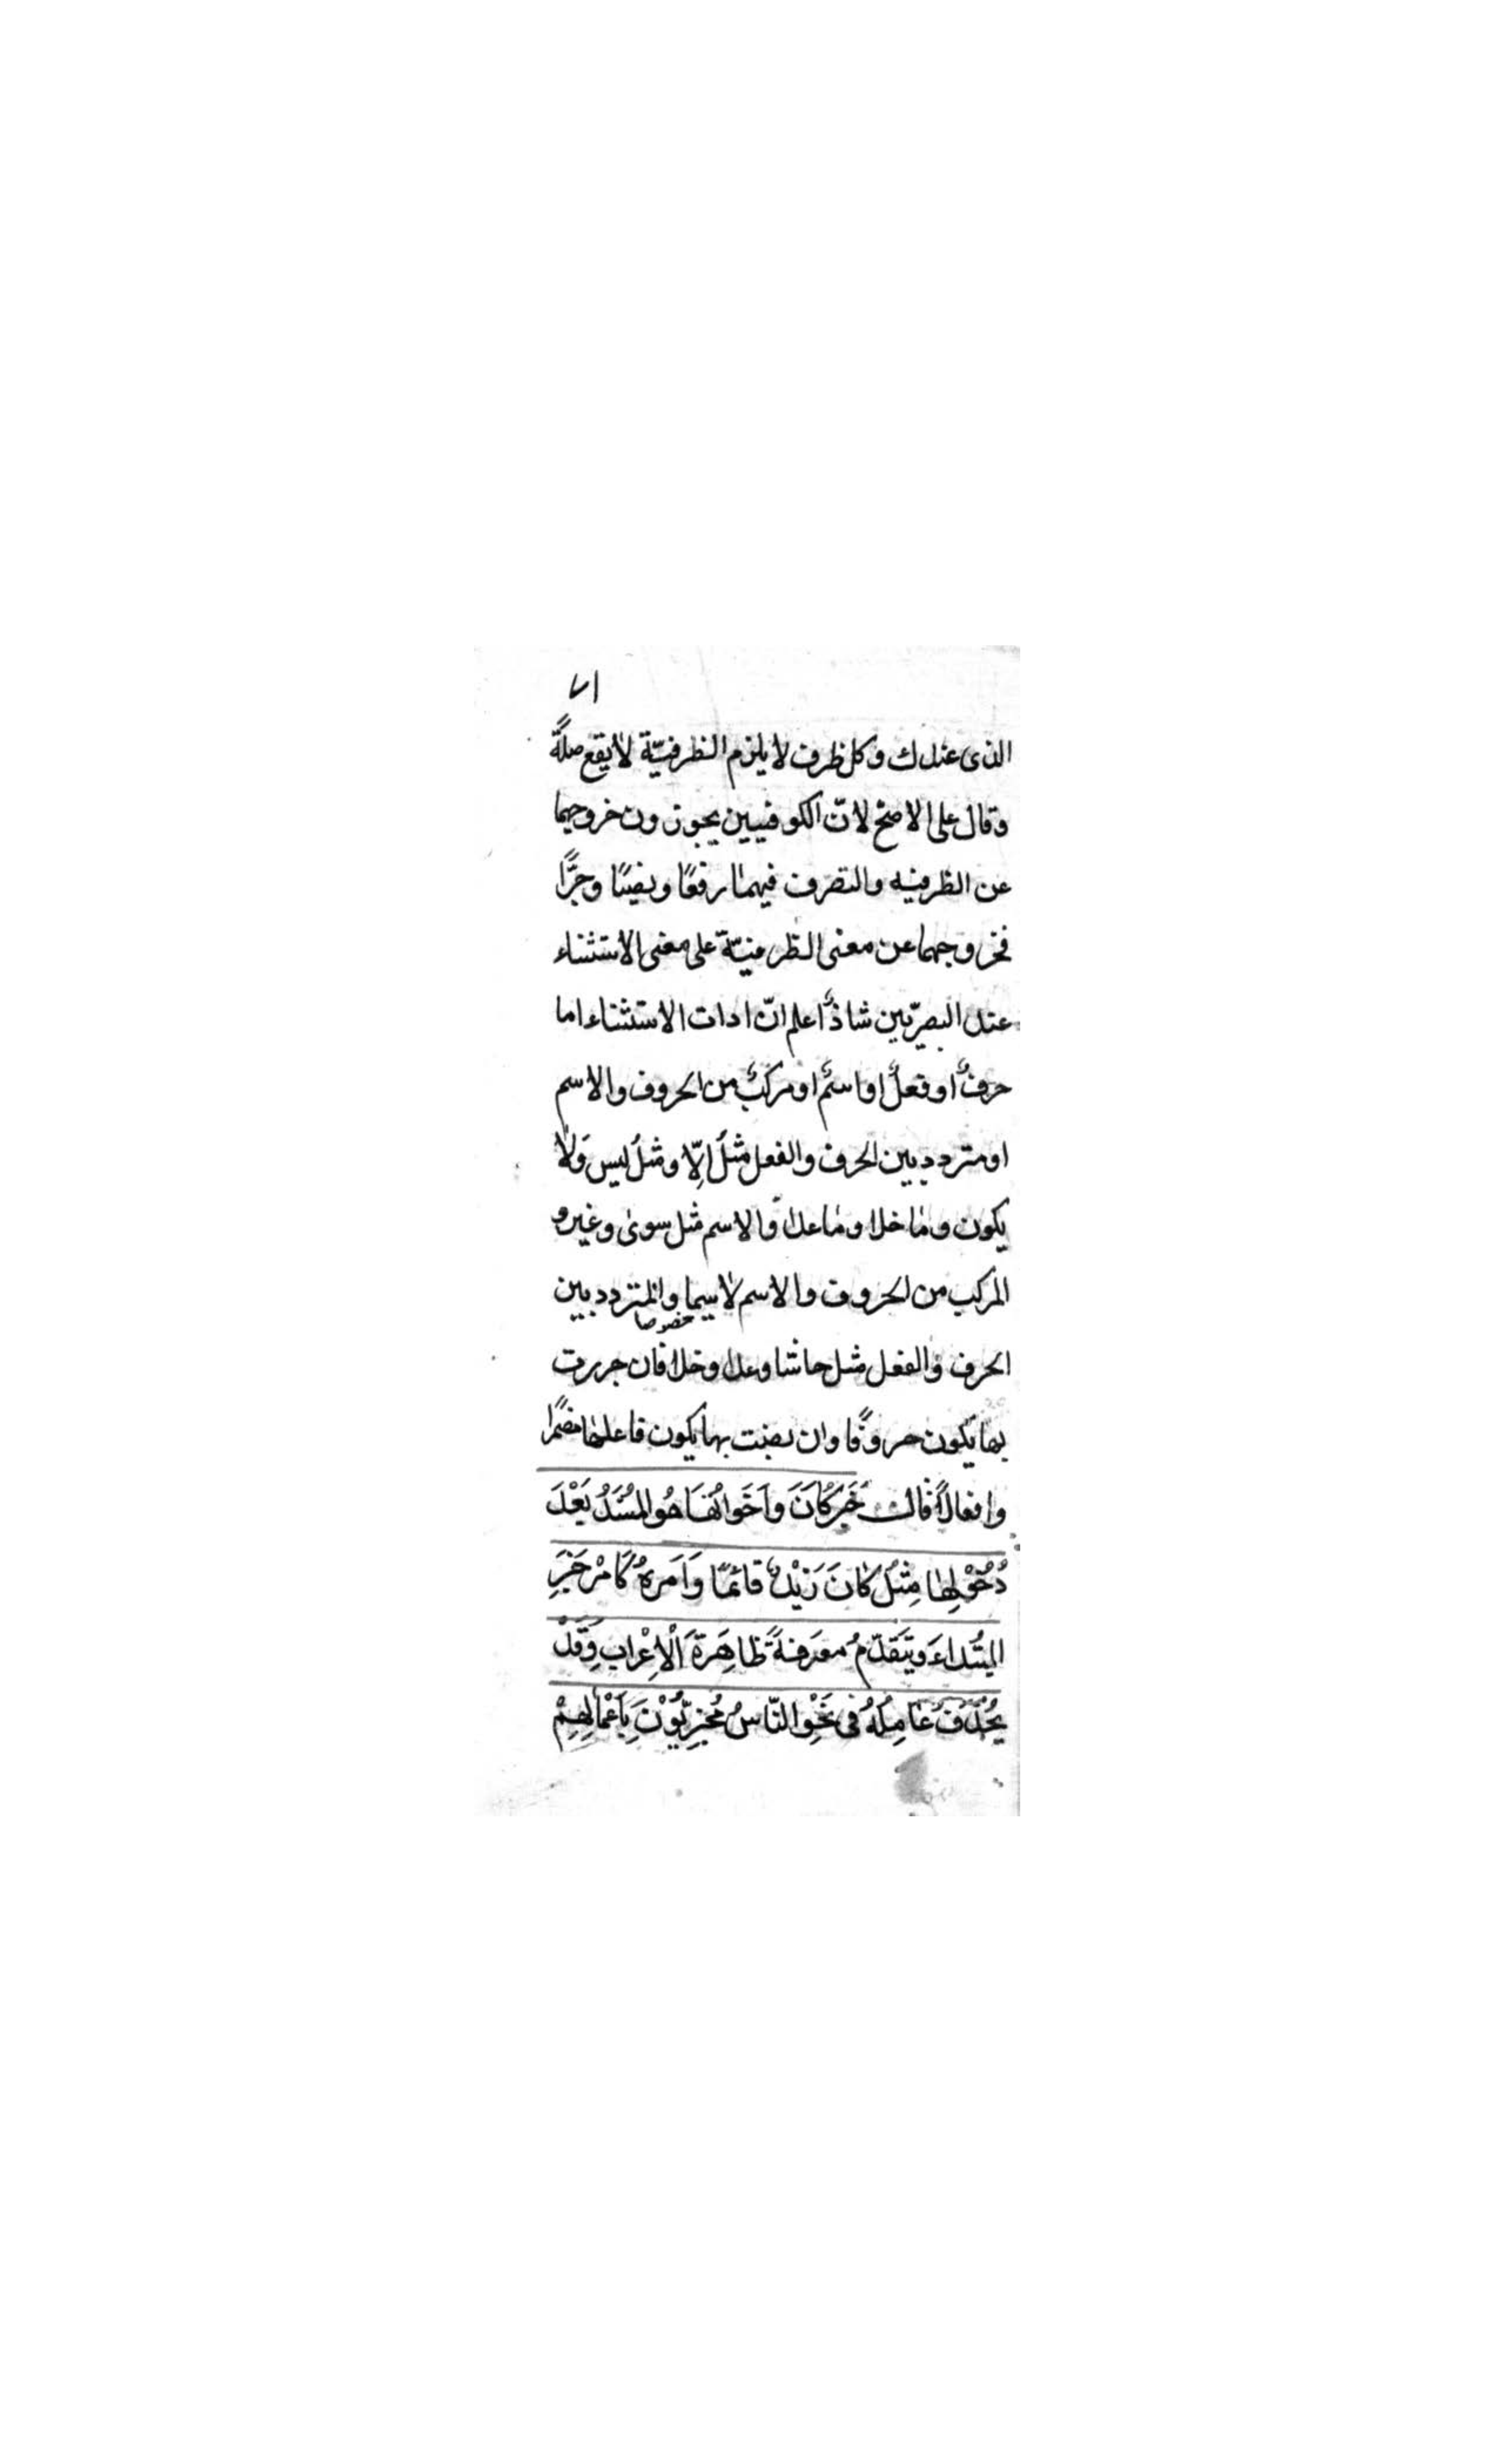 ٧١
الذى عندك وكل ظرف لا يلزم الظرفيّة لا يقع صلةً
وقال على الاصح لانّ الكوفيين يجوزون خروجهما
عن الظرفيه والتصرف فيهما رفعًا ونصبًا وجرًّا
فخروجهما عن معنى الظرفيّة على معنى الاستثناء
عند البصريّين شاذٌ اعلم انّ ادات الاستثناء اما
حرفٌ او فعلٌ او اسمٌ او مركبٌ من الحروف والاسم
او متردد بين الحرف والفعل مثلُ اِلّا ومثلُ ليس وَلا
يكون وما خلا وما عدا والاسم مثل سوى وغير و
المركب من الحروف والاسم لا سيما والمتردد بين
خصوصا
الحرف والفعل مثل حاشا وعدا وخلا فان جررت
بها يكون حروفًا وان نصبت بها يكون فاعلها مضمرًا
وافعالاً قال خَبَرُ كَانَ وَاَخَواتُهَا هُوَ المُسْنَدُ بَعْدَ
دُخُوْلِهَا مِثْلُ كَانَ زَيْدٌ قائمًا وَاَمَرهُ كَاَمْرِ خَبَرِ
المبُتداءَ ويَتَقَدّمُ معَرفةً ظاهِرَةَ الْاِعْرابِ وَقَدْ
يُحْذَفُ عَامِلُهُ فى نَحْوِ النّاسُ مُجْزِيّوُْنَ بِاَعْمالِهِمْ